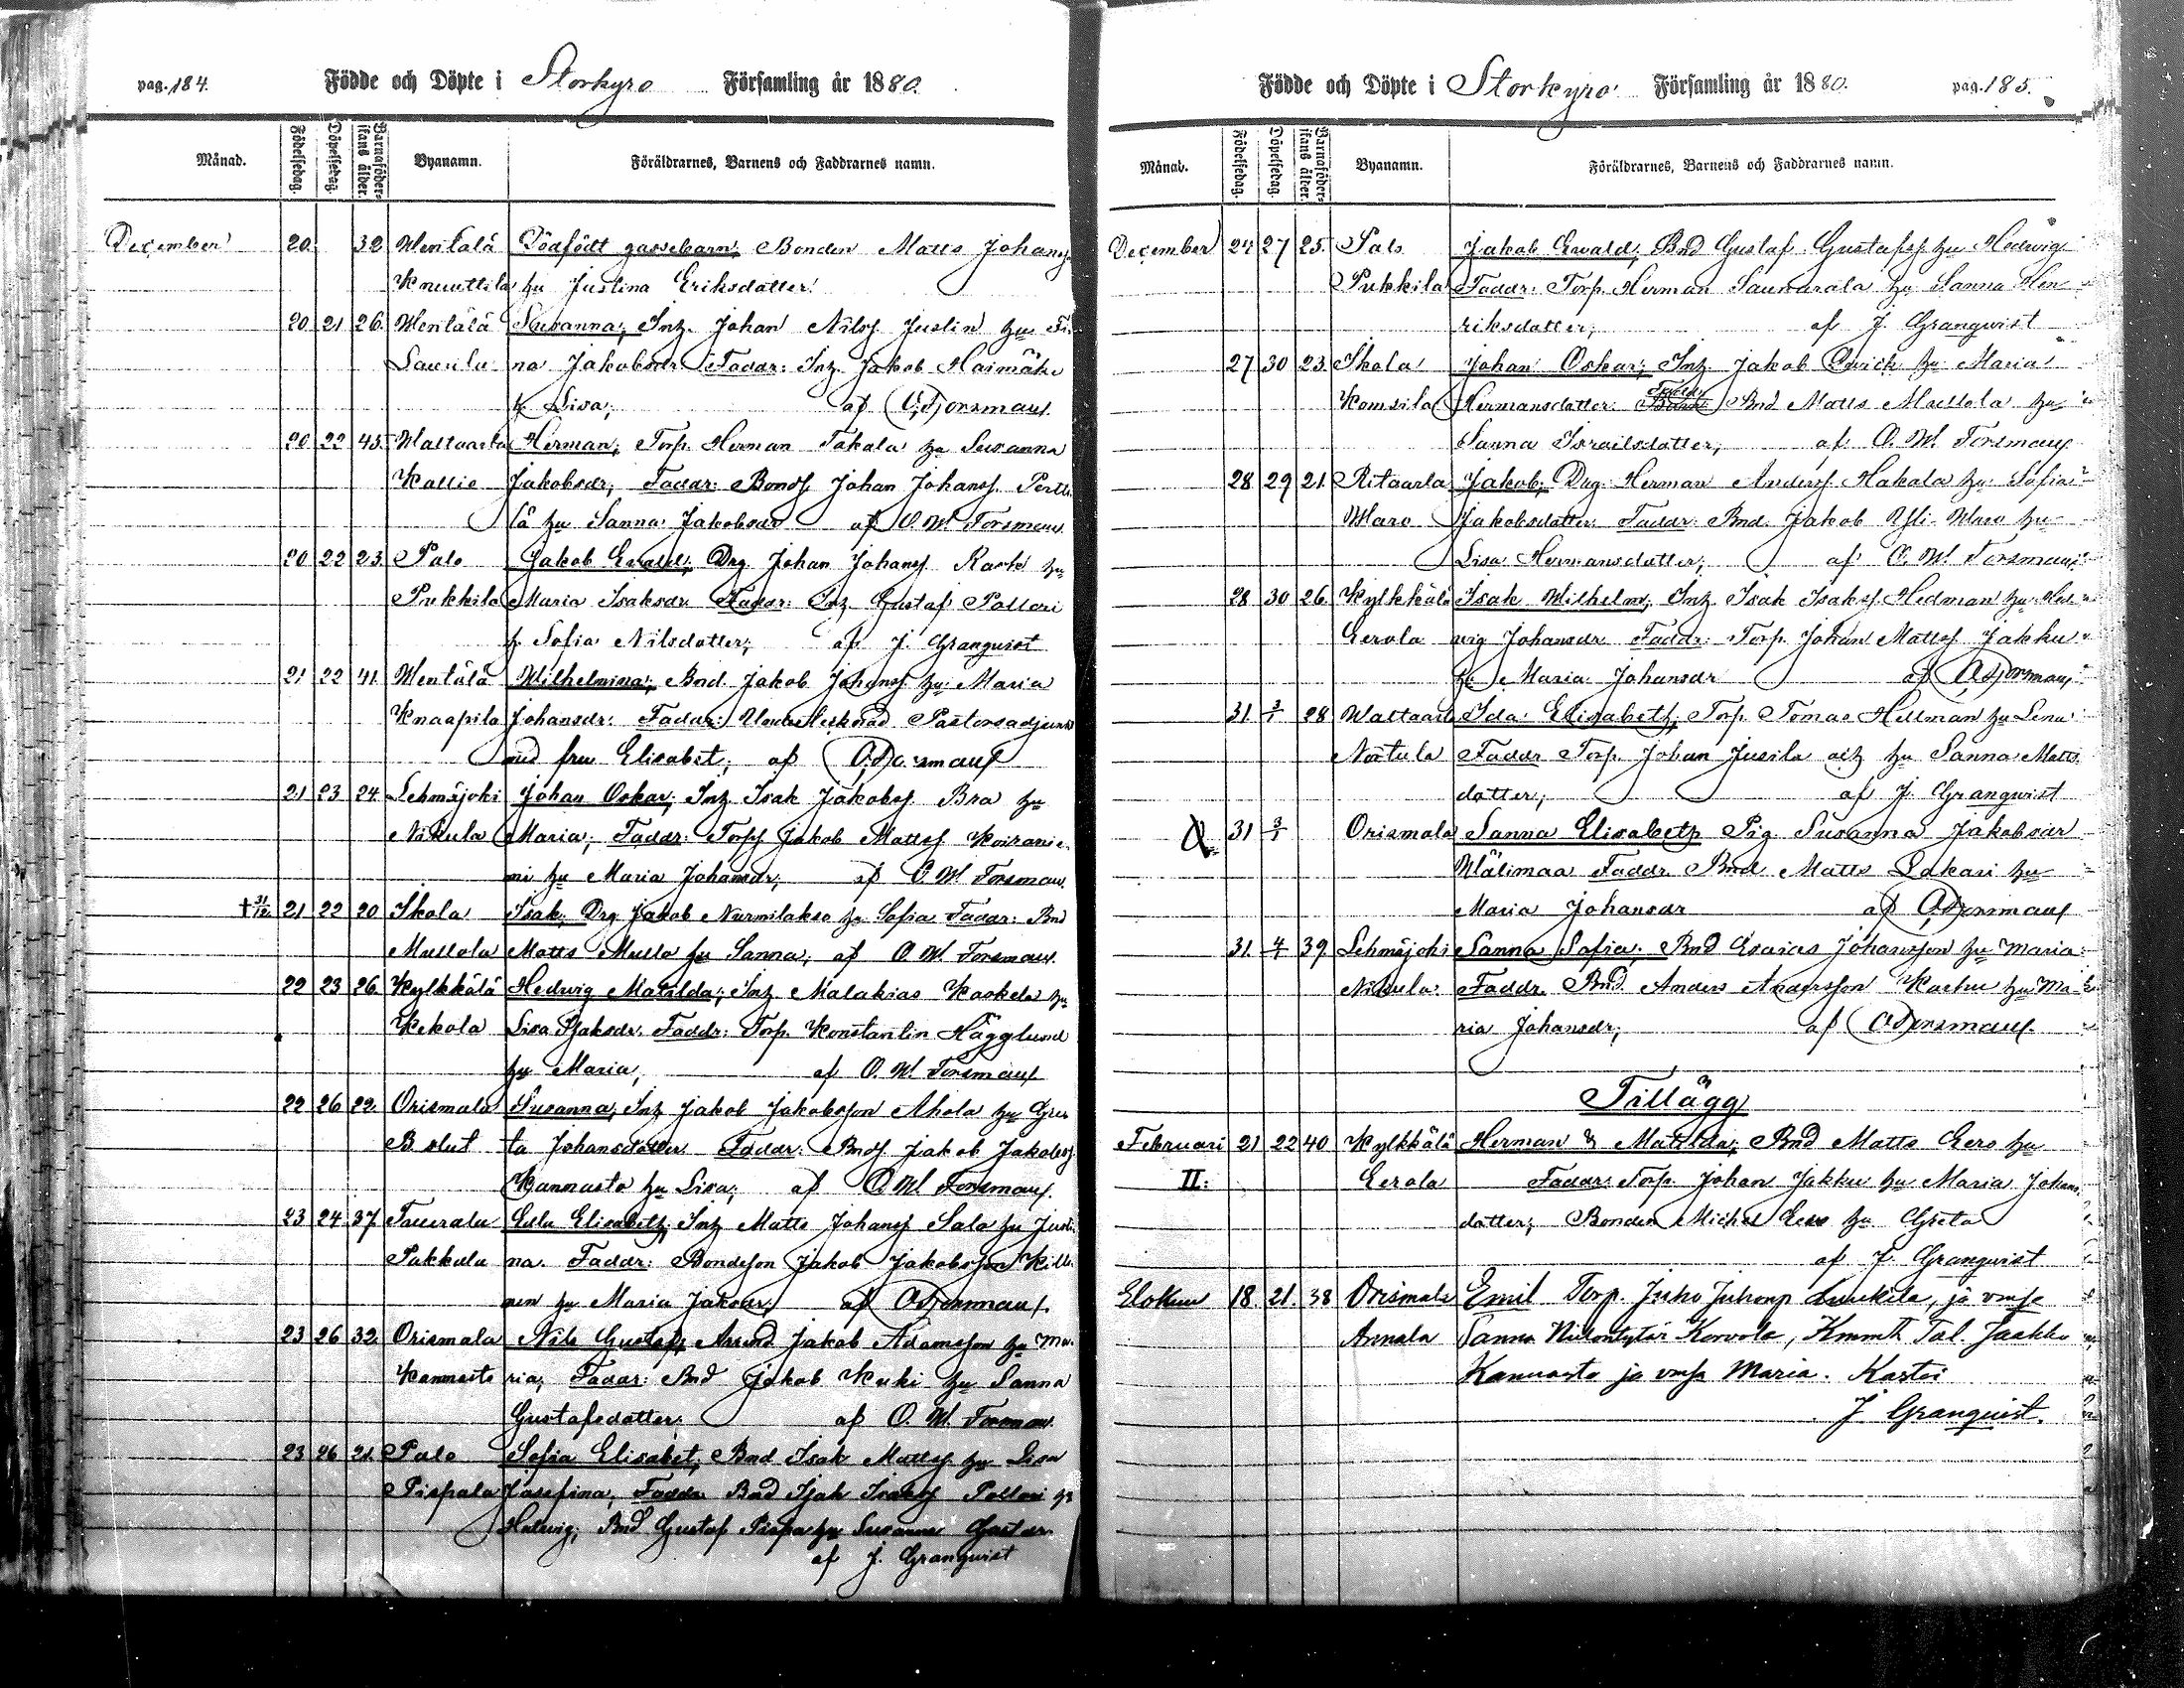 pag. 184.
Födde och Döpte i Storkyro Församling år 1880.
Månad. Födelsedag. Döpelsedag. Barnaföderskans ålder. Byanamn. Föräldrarnes, Barnens och Faddrarnes namn.
December 20. 32 Wentälä Dödfödt gossebarn; Bonden Matts Johanss
Knuuttila hu Justina Eriksdotter
20 21 26. Wentälä Susanna; Inh. Johan Nilss Juslin hu Fi
Laurila na Jakobsdr Faddr: Inh. Jakob Harmäki
h Lisa; af O.W. Forsman
20 22 43. Waltaarla Herman; Torp. Herman Takala hu Susanna
Kallio Jakobsdr; Faddr: Bonds Johan Johanss. Perttu
lä hu Sanna Jakobsdr af O. W. Forsman
20 22 23 Palo Jakob Evald; Drg Johan Johanss hu
Pukkila Maria Isaksdr Faddr: Inh Gustaf Pollari
h Sofia Nilsdotter; af J. Granqvist
21 22 41. Wentälä Wilhelmina; Bnd. Jakob Johanss hu Maria
Knaapila Johansdr: Faddr: Undertecknad Pastorsadjunkt
med fru Elisabet; af O.W. Forsman
21 23 24 Lehmäjoki Johan Oskar; Inh Isak Jakobss. Bra hu
Nikula Maria; Faddr: Torp Jakob Mattss Koiranie
mi hu Maria Johansdr; af O. W. Forsman
† 31/12 21 22 20 Ikola Isak; Drg Jakob Nurmilakso hu Sofia Faddr: Bnd
Mullola Matts Mullo hu Sanna; af O. W. Forsman
22 23 26. Kylkkälä Hedwig Matilda; Inh Malakias Kaskela hu
Kekola Lisa Isaksdr. Faddr: Torp Konstantin Hägglund
hu Maria; af O. W. Forsman
22 26 22. Orismala Susanna; Inh Jakob Jakobsson Ahola hu Gre
B slut ta Johansdotter Faddr: Bnds Jakob Jakobss
Kannasto hu Lisa; af O. W. Forsman
23 24 37. Tauerala Lisa Elisabeth; Inh Matts Johanss Salo hu Justi
Pukkala na. Faddr: Bondeson Jakob Jakobsson Kille
nen hu Maria Jakobdr; af O.W. Forsman
23 26 32. Orismala Nils Gustaf; Arrend Jakob Adamsson hu Ma
Kannasto ria; Faddr: Bnd Jakob Kuki hu Sanna
Gustafsdotter; af O. W. Forsman
23 26 21. Palo Sofia Elisabet; Bnd Isak Mattss hu Lisa
Pispala Josefina; Faddr Bnd Isak Isakss Pollari hu
Hedwig; Bnd Gustaf Pispa hu Susanna
af J. Granqvist
pag. 185.
Födde och Döpte i Storkyro Församling år 1880.
Månad. Födelsedag. Döpelsedag. Barnaföderskans ålder. Byanamn. Föräldrarnes, Barnens och Faddrarnes namn.
December 24 27 25. Palo Jakob Evald; Bnd Gustaf Gustafss hu Hedwig
Pukkila Faddr: Torp. Herman Saunarala hu Sanna Hen
riksdotter; af J. Granqvist
27 30 23. Ikola Johan Oskar; Inh Jakob hu Maria
Komsila Hermansdotter Faddr Bnd Matts Mullola hu
Sanna Israilsdotter; af O. W. Forsman
28 29 21. Ritaarla Jakob; Drg. Herman Anderss. Hakala hu Sofia
Waro Jakobsdotter Faddr: Bnd. Jakob Yli-Waro hu
Lisa Hermansdotter; af O. W. Forsman
28 30 26. Kylkkälä Isak Wilhelm; Inh Isak Isakss. Hedman hu Hed
Eerola wig Johansdr Faddr: Torp. Johan Mattss Jakku
h Maria Johansdr af O.W. Forsman
31 3/1 28 Waltaarla Ida Elisabeth; Torp. Tomas Hellman hu Lena
Nortula Faddr Torp. Johan Jusila hu Sanna Matts
dotter; af J. Granqvist
31 3/1 Orismala Sanna Elisabeth Pig Susanna Jakobsdr
Wälimaa Faddr Bnd Matts Lakari hu
Maria Johansdr af O.W. Forsman
31. 4/1 39. Lehmäjoki Sanna Sofia; Bnd Esaias Johansson hu Maria
Nikula. Faddr. Bnd Anders Andersson Karhu hu Ma-
ria Johansdr; af O.W. Forsman
Tillägg
Februari 21 22 40 Kylkkälä Herman & Matilda; Bnd Matts Eero hu
II: Eerola Faddr: Torp. Johan Jakku hu Maria Johans
dotter; Bonden Michel Eero hu Greta
af J. Granqvist
Elokuu 18. 21. 38 Orismala Emil Torp. Juho Juhonp Luukela, ja vmsa
Annala Sanna Niilontytär Korvola, Kmmit Tal. Jaakko
Kannasto ja vmsa Maria. Kastoi
J Granqvist.